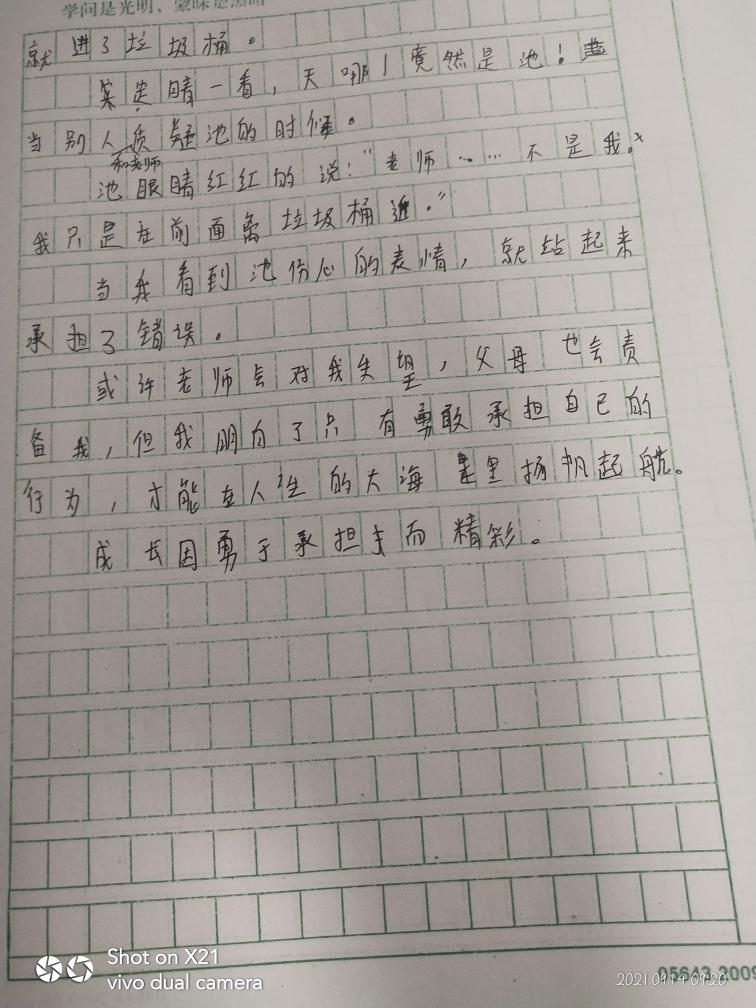 学问是光明，蒙昧是黑暗
就进了垃圾桶。
定睛一看，天哪！竟然是池！
当别人质疑池的时候。
和老师
池眼睛红红的说："老师……不是我。
我只是在前面离垃圾桶近。"
当我看到池伤心的表情，就站起来
承担了错误。
或许老师会对我失望，父母也会责
备我，但我明白了只有勇敢承担自己的
行为，才能在人生的大海里扬帆起航。
成长因勇于承担而精彩。
Shot on X21
vivo dual camera
2021.09.14 09:20
05613.2009